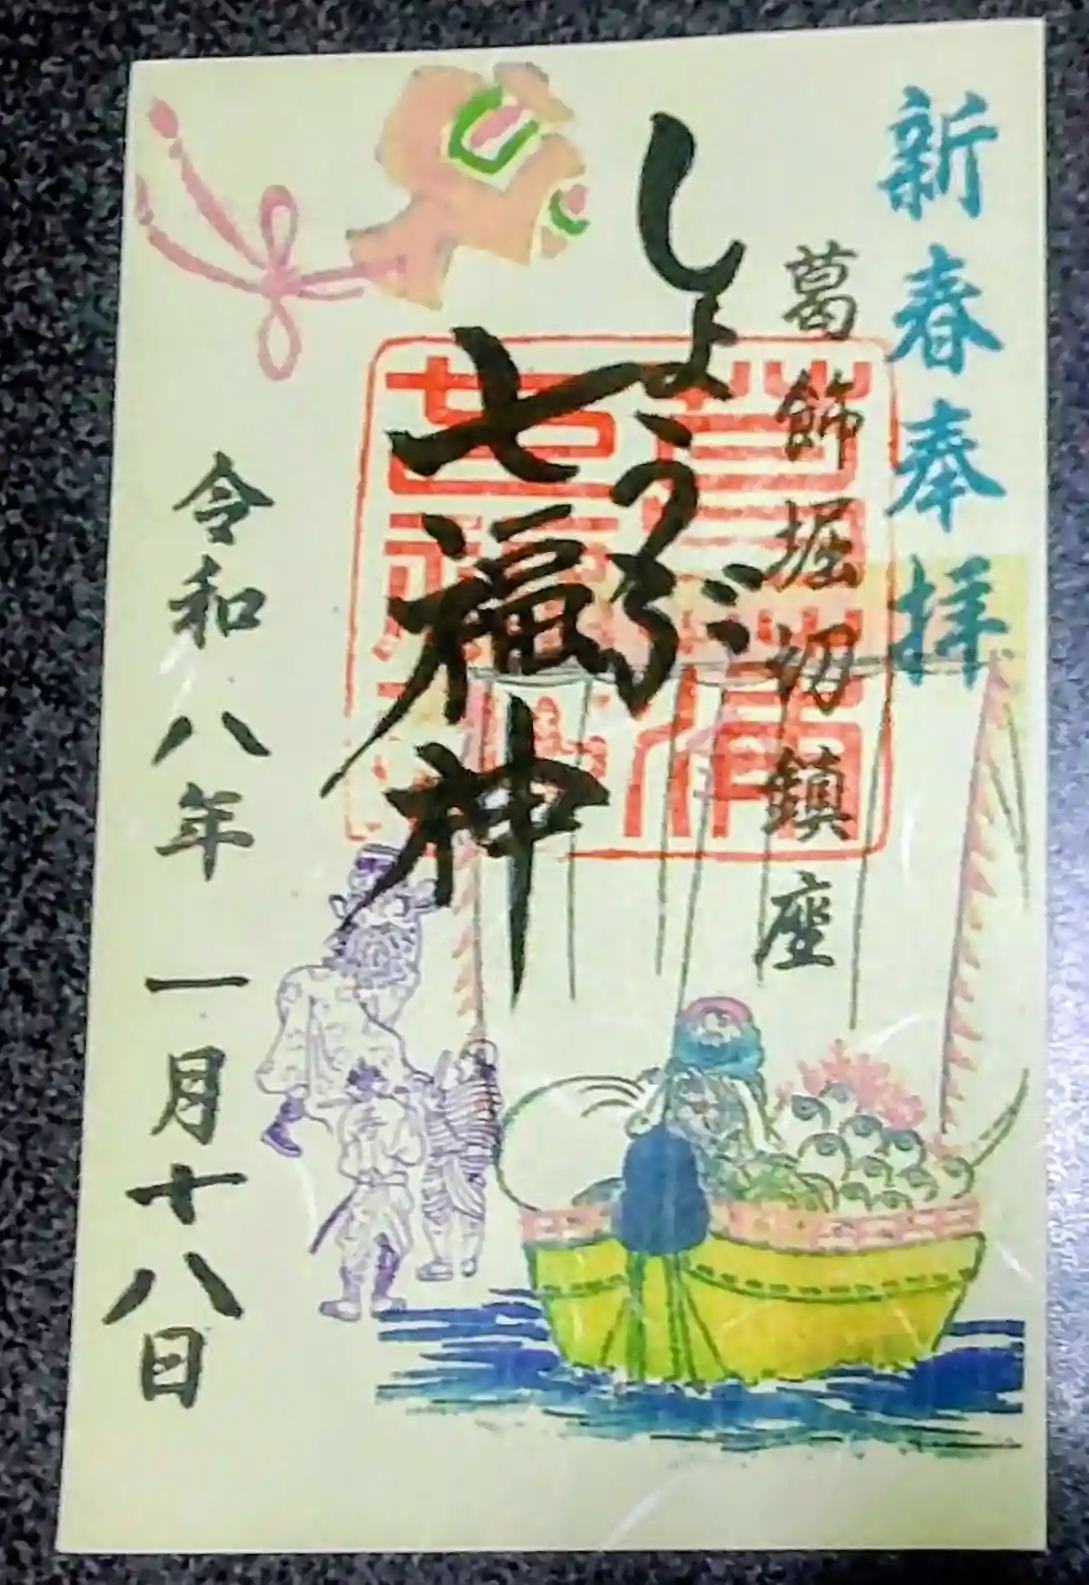 新春奉拝
葛飾堀切鎮座
しょうぶ
七福神
令和八年一月十八日